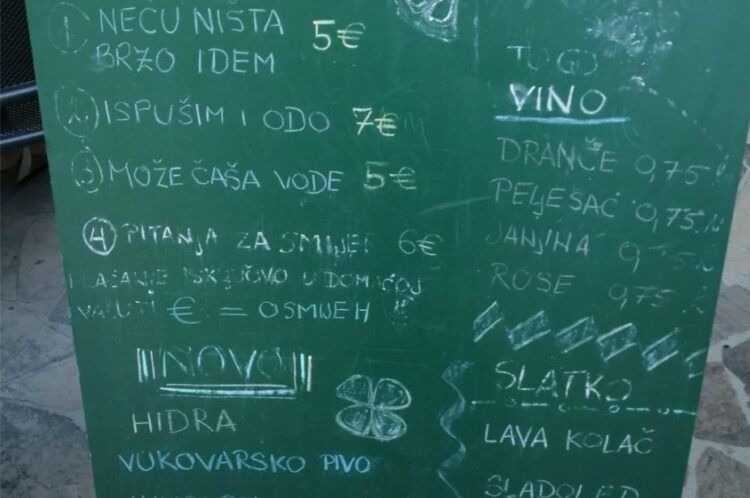 1 NEĆU NIŠTA 5€
BRZO IDEM
2 ISPUŠIM I ODO 7€
3 MOŽE ČAŠA VODE 5€
4 PITANJA ZA SMIJEH 6€
PLAĆANJE ISKLJUČIVO U DOMAĆOJ
VALUTI € = OSMIJEH
NOVO
HIDRA
VUKOVARSKO PIVO
TO GO
VINO
DRANČE 0,75 l
PELJEŠAC 0,75 l
JANJINA 0,75 l
ROSE 0,75 l
SLATKO
LAVA KOLAČ
SLADOLED